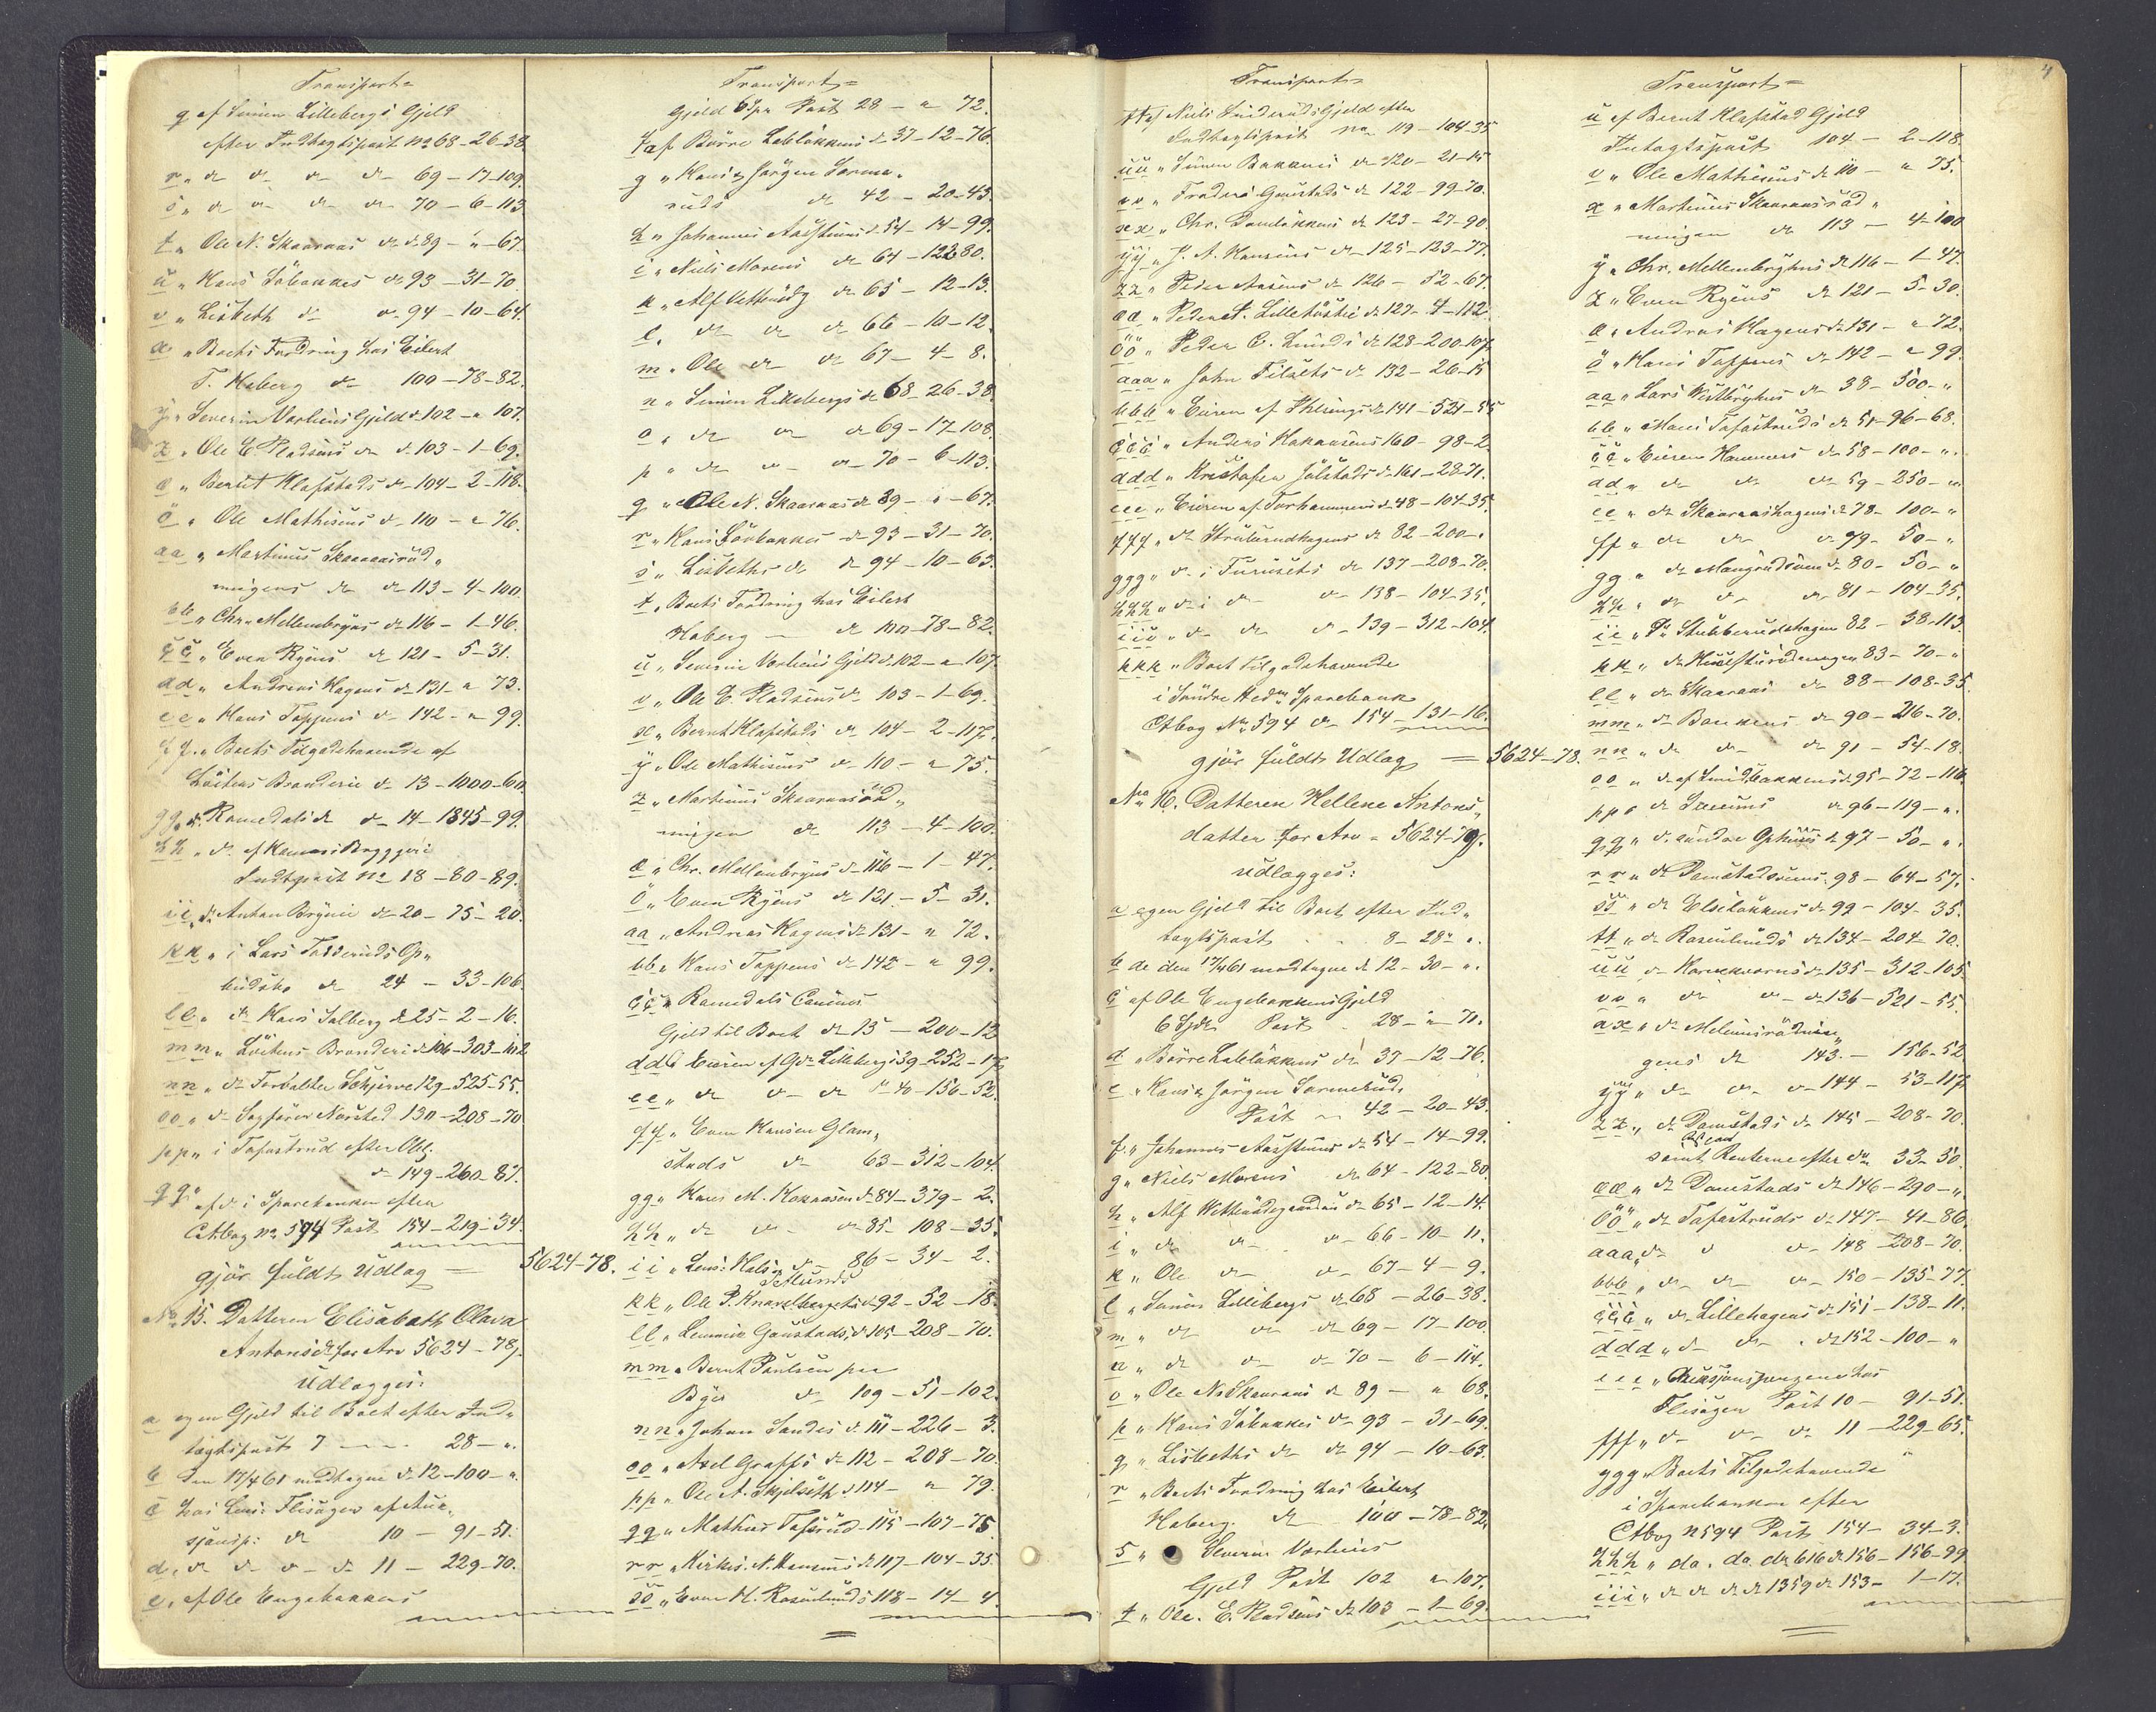 Transport =
q af Simen Lillebergs Gjeld
efter Indtægtspost No 68 - 26 - 38.
r " do do do do 69 - 17 - 109.
s " do do do do 70 - 6 - 113
t " Ole N. Skaaraas do do 89 - " - 67.
u " Hans Söbakkes do 93 - 31 - 70.
v " Lisbeth do do 94 - 10 - 64.
x " Boets Fordring hos Eilert
T. Haberg do 100 - 78 - 82.
y " Severin Vorliens Gjeld do 102 - " 107.
z " Ole E. Pladsens do do 103 - 1 - 69.
æ " Bernt Klafstads do 104 - 2 - 118.
ö " Ole Mathisens do 110 - " 76.
aa " Martinus Skaaraasrud„
ningens do do 113 - 4 - 100.
bb " Chr. Mellembyens do 116 - 1 - 46.
cc " Even Ryens do 121 - 5 - 31.
dd " Andreas Hagens do 131 - " 73.
ee " Hans Toppens do 142 - " 99.
ff " Boets Tilgodehavende af
Löitens Brænderie do 13 - 1000 - 60.
gg " do Ramedals do do 14 - 1845 - 99.
hh " do af Hamars Bryggeri
Indtpost No 18 - 80 - 89.
ii " do Anton Bryni do 20 - 75 - 20.
kk " i Lars Tosderuds Op„
budsbo do 24 - 33 - 106.
ll " do Hans Salberg do 25 - 2 - 16.
mm " Löitens Brænderi do 106 - 303 - 102
nn " do Forvalter Schjerve 129 - 525 - 55.
oo " do Sagförer Norsted 130 - 208 - 70
pp " i Tafastrud efter Obl.
do 149 - 260 - 87.
qq " af do i Sparebanken efter
Ctbog No 594 Post 154 - 219 - 34.
gjör fuldt Udlæg = 5624 - 78.
No 15. Datteren Elisabath Olava
Antonisdr for Arv 5624 - 78/.
udlægges:
a egen Gjeld til Boet efter Ind„
tægtspost 7 - - - 28 - ".
b den 17/4 61 modtagne do 12 - 100 - ".
c hos Lens: Flisagen af Auk„
sjonsp: do 10 - 91 - 51.
d " do do do do 11 - 229 - 70.
e " af Ole Engebakkens
Transport =
Gjeld 6 Spr Post 28 - " 72.
f af Börre Lablökkens do 37 - 12 - 76.
g " Hans & Jörgen Sorme„
ruds do 42 - 20 - 43.
h " Johannes Aasstuens do 54 - 14 - 99.
i " Niels Morens do 64 - 122 80.
k " Alf do 65 - 12 - 13.
l " do do do 66 - 10 - 12.
m " Ole do do 67 - 4 - 8.
n " Simen Lillebergs do 68 - 26 - 38.
o " do do do 69 - 17 - 108.
p " do do do 70 - 6 - 113.
q " Ole N. Skaaraas do 89 - " - 67.
r " Hans Söbakkes do 93 - 31 - 70.
s " Lisbeths do do 94 - 10 - 63.
t " Boets Fordring hos Eilert
Haberg - do 100 - 78 - 82.
u " Severin Vorliens Gjeld do 102 - " 107.
v " Ole E. Pladsens do 103 - 1 - 69.
x " Bernt Klafstads do 104 - 2 - 117.
y " Ole Mathisens do 110 - " 75.
z " Martinus Skaaraasrud„
ningen do 113 - 4 - 100.
æ " Chr. Mellembyens do 116 - 1 - 47.
ö " Even Ryens do 121 - 5 - 31.
aa " Andreas Hagens do 131 - " 72.
bb " Hans Toppens do 142 - " 99.
cc " Ramedals
Gjeld til Boet do 15 - 200 - 12
dd " Eieren af Gdr Lilleberg 39 - 252 - 17
ee " do do do do 40 - 156 - 52.
ff " Even Hansen Glam„
stads do 63 - 312 - 104.
gg " Hans M. Kokaasen do 84 - 379 - 2.
hh " do do do 85 - 108 - 35.
ii " Lens: Hals & do 86 - 34 - 2.
kk " Ole P. Knavelbergets do 92 - 52 - 18.
ll " Lennsen Gaustads do 105 - 208 - 70.
mm " Bernt Poulsen paa
Bye do 109 - 51 - 102.
nn " Johan Sandes do 111 - 226 - 3.
oo " Axel Graffs do 112 - 208 - 70.
pp " Ole A. Skjelseth do 114 - " 79.
qq " Mathias Tafsrud 115 - 107 - 75.
rr " Kirkes. N. Hansens do 117 - 104 - 35.
ss " Even H. Rosenlunds 118 - 14 - 4.
Transport =
tt af Niels Gjeld efter
Indtægtspost No 119 - 104 - 35
uu " Simen Bakkens do 120 - 21 - 15
vv " Fredrik Gaustads do 122 - 99 - 70.
xx " Chr. Damlökkens do 123 - 27 - 90.
yy " J. A. Hansens do 125 - 123 - 77.
zz " Peder Aasens do 126 - 52 - 67.
ææ " Peder A. Lilletöstie do 127 - 4 - 112.
öö " Peder C. Lunds do 128 - 200 - 107.
aaa " John Tilseths do 132 - 26 - 15
bbb " Eieren af do 141 - 521 - 55
ccc " Anders Kokaasens 160 - 98 - 2.
ddd " Kristofer Jölstads do 161 - 28 - 71.
eee " Eieren af Torhammers do 48 - 104 - 35.
fff " do Strubrudhagens do 82 - 200 - ".
ggg " do i Furusets do 137 - 208 - 70.
hhh " do i do do 138 - 104 - 35.
iii " do do do 139 - 312 - 104.
kkk " Boet tilgodehavende
i Söndre Hedm Sparebank
Ctbog No 594 do 154 - 131 - 16.
gjör fuldt Udlæg = 5624 - 78.
No 16. Datteren Hellene Antons„
datter for Arv - 5624 - 78/.
udlægges:
a egen Gjeld til Boet efter Ind„
tægtspost - - 8 - 28 - ".
b do den 17/4 61 modtagne do 12 - 30 - ".
c af Ole Engebakkens Gjeld
6 Spdr Post - 28 - " 71.
d " Börre Lablökkens do 37 - 12 - 76.
e " Hans & Jörgen Sormeruds
Post - 42 - 20 - 43.
f " Johannes Aasstuens do 54 - 14 - 99.
g " Niels Morens do 64 - 122 - 80.
h " Alf do 65 - 12 - 14.
i " do do do 66 - 10 - 11.
k " Ole do do 67 - 4 - 9.
l " Simens Lillebergs do 68 - 26 - 38.
m " do do do 69 - 17 - 100.
n " do do do 70 - 6 - 114.
o " Ole Ns Skaaraas do 89 - " 68.
p " Hans Söbakkes do 93 - 31 - 69.
q " Lisbeths do do 94 - 10 - 63.
r " Boets Fordring hos Eilert
Haberg. do 100 - 78 - 82.
s " Severin Vorliens
Gjeld Post 102 " 107.
t " Ole. E. Pladsens do 103 - 1 - 69.
4
Transport =
u af Bernt Klafstad Gjeld
Intægtspost 104 - 2 - 118.
v " Ole Mathisens do 110 - " 75.
x " Martinus Skaaraasrud„
ningen do 113 - 4 - 100
y " Chr. Mellembyens do 116 - 1 - 47.
z " Even Ryens do 121 - 5 - 30.
æ " Andreas Hagens do 131 - " 72.
ö " Hans Toppens do 142 - " 99.
aa " Lars Westbyhus do 38 - 500 - "
bb " Hans Tafastruds do 51 - 96 - 68.
cc " Eieren Hammers do 58 - 100 - ".
dd " do do do 59 - 250 - "
ee " do Skaaraashagens do 78 - 100 - "
ff " do do do 79 - 50 - "
gg " do do 80 - 50 - "
hh " do do do 81 - 104 - 35.
ii " do Stubberudshagen 82 - 38 - 113.
kk " do 83 - 70 - "
ll " do Skaaraas do 88 - 108 - 35.
mm " do Bakkens do 90 - 216 - 70.
nn " do do do 91 - 54 - 18.
oo " do af Smidsbakkens do 95 - 72 - 116.
pp " do do 96 - 119 - ".
qq " do söndre Ophuus do 97 - 50 - ".
rr " do 98 - 64 - 57.
ss " do Elselökkens do 99 - 104 - 35.
tt " do Rosenlunds do 134 - 204 - 70.
uu " do do 135 - 312 - 105.
vv " do do do 136 - 521 - 55.
xx " do
gens do 143. - 156 - 52
yy " do do do 144 - 53 - 117
zz " do Damstads do 145 - 208 - 70.
samt Renterne efter do 33 - 50.
ææ " do Damstads do 146 - 290 - ".
öö " do Tafastruds do 147 - 41 - 86.
aaa " do do do 148 - 208 - 70.
bbb " do do do 150 - 135 - 77.
ccc " do Lillehagens do 151 - 138 - 11.
ddd " do do do 152 - 100 - "
eee " Auksjonspengene hos
Flisagen Post 10 - 91 - 51.
fff " do do do 11 - 229 - 65.
ggg " Boets Tilgodehavende
i Sparebanken efter
Ctbog No 594 Post 154 - 34 - 3.
hhh " do. do. do 616 do 156 - 156 - 99
iii " do do do do 1359 do 153 - 1 - 17.